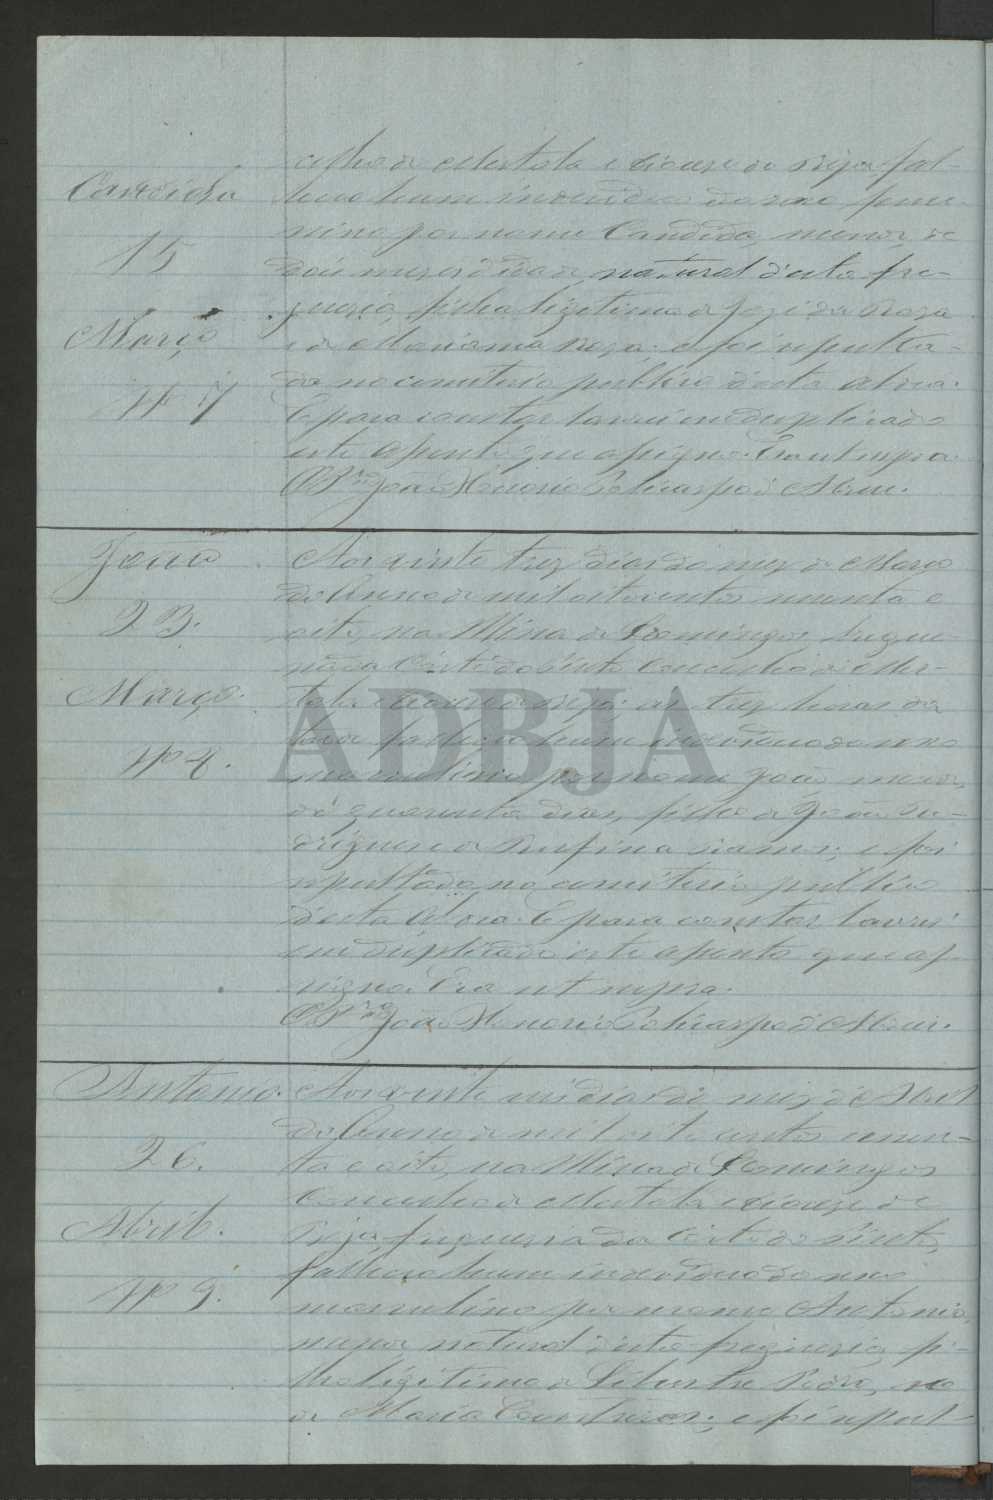 Candida
15
Março
Nº 7
celho de Mertola e diocese de Beja fal-
leceo hum individuo do sexo femi-
nino por nome Candida, menor de
mezes de idade natural desta fre-
guesia, filha legitima de José da Roza
e de Marianna Roza: e foi sepulta-
da no cemiterio publico desta aldea.
E para constar lavrei em duplicado
este assento que assigno. Era ut supra.
O Pr.or João Honorio Policarpo d'Abreu.
João
23.
Março.
Nº 8.
Aos vinte trez dias do mez de Março
do Anno de mil oitocentos e
oito, na Mina de S. Domingos, fregue-
sia da Corte do Pinto Concelho de Mer-
tola e diocese de Beja: as trez horas da
tarde falleceo hum individuo do sexo
masculino por nome João, menor,
de quarenta dias, filho de João Ro-
drigues e de Rufina Ramos; e foi
sepultado no cemiterio publico
desta aldea. E para constar lavrei
em duplicado este assento que as-
signo. Era ut supra.
O Pr.or João Honorio Policarpo d'Abreu.
Antonio.
26.
Abril.
Nº 9.
Aos vinte seis dias do mez de Abril
do Anno de mil oito centos
e oito, na Mina de S. Domingos
Concelho de Mertola e diocese de
Beja, freguesia da Corte do Pinto,
falleceo hum individuo do sexo
masculino por nome Antonio,
menor, natural desta freguesia, fi-
lho legitimo de
de Maria; e foi sepul-
ADBJA